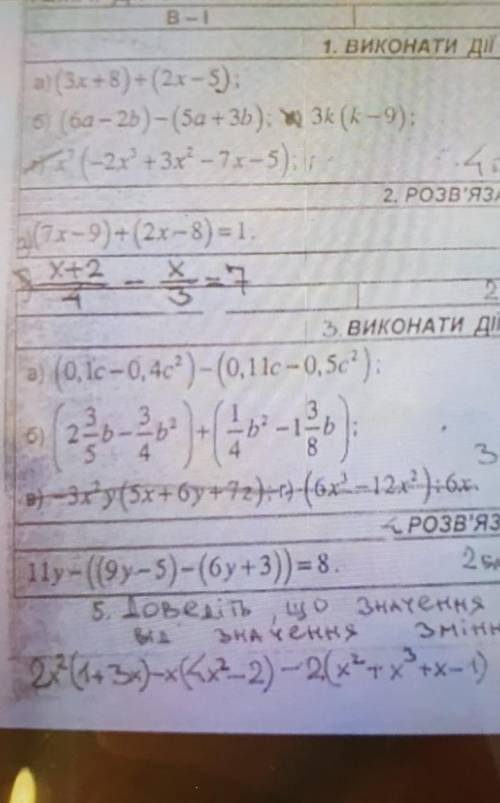 В – I
1. ВИКОНАТИ ДІЇ
а) (3x+8)+(2x−5);
б) (6a−2b)−(5a+3b); 3k(k−9);
(−2x³+3x²−7x−5);
2. РОЗВ'ЯЗА
(7x−9)+(2x−8)=1.
(x+2)/4 − x/3 = 7
2
3. ВИКОНАТИ ДІЇ
а) (0,1c−0,4c²)−(0,11c−0,5c²);
б) (2 3/5 b − 3/4 b²)+(1/4 b² − 1 3/8 b);
3
в) −3x²y(5x+6y+7z); г) (6x³−12x²):6x.
РОЗВ'ЯЗ
11y−((9y−5)−(6y+3))=8.
5. Доведіть, що значення
від значення змінн
2x²(1+3x)−x(4x²−2)−2(x²+x³+x−1)